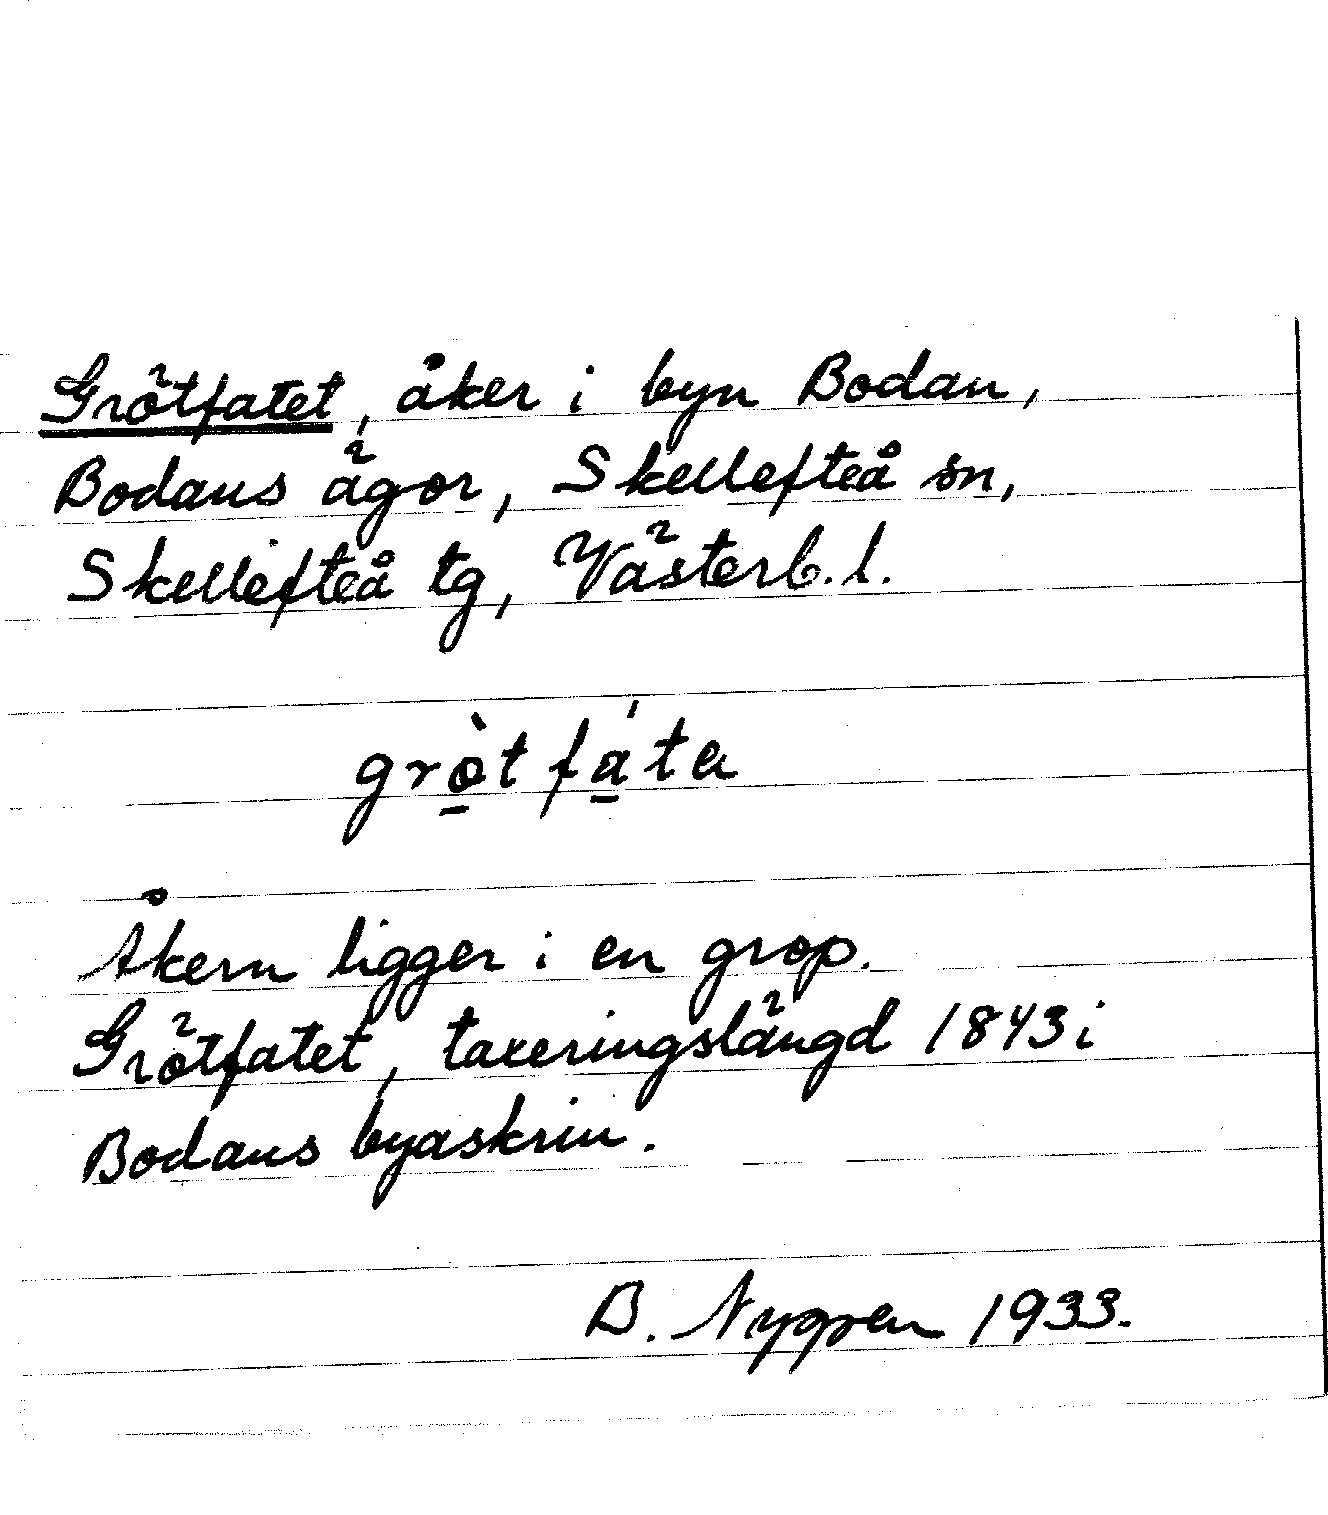 Grötfatet, åker i byn Bodan,
Bodans ägor, Skellefteå sn,
Skellefteå tg, Västerb. l.
grò̲tfa̲̍ta
Åkern ligger i en grop.
Grötfatet, taxeringslängd 1843 i
Bodans byaskrin.
B. Nygren 1933.